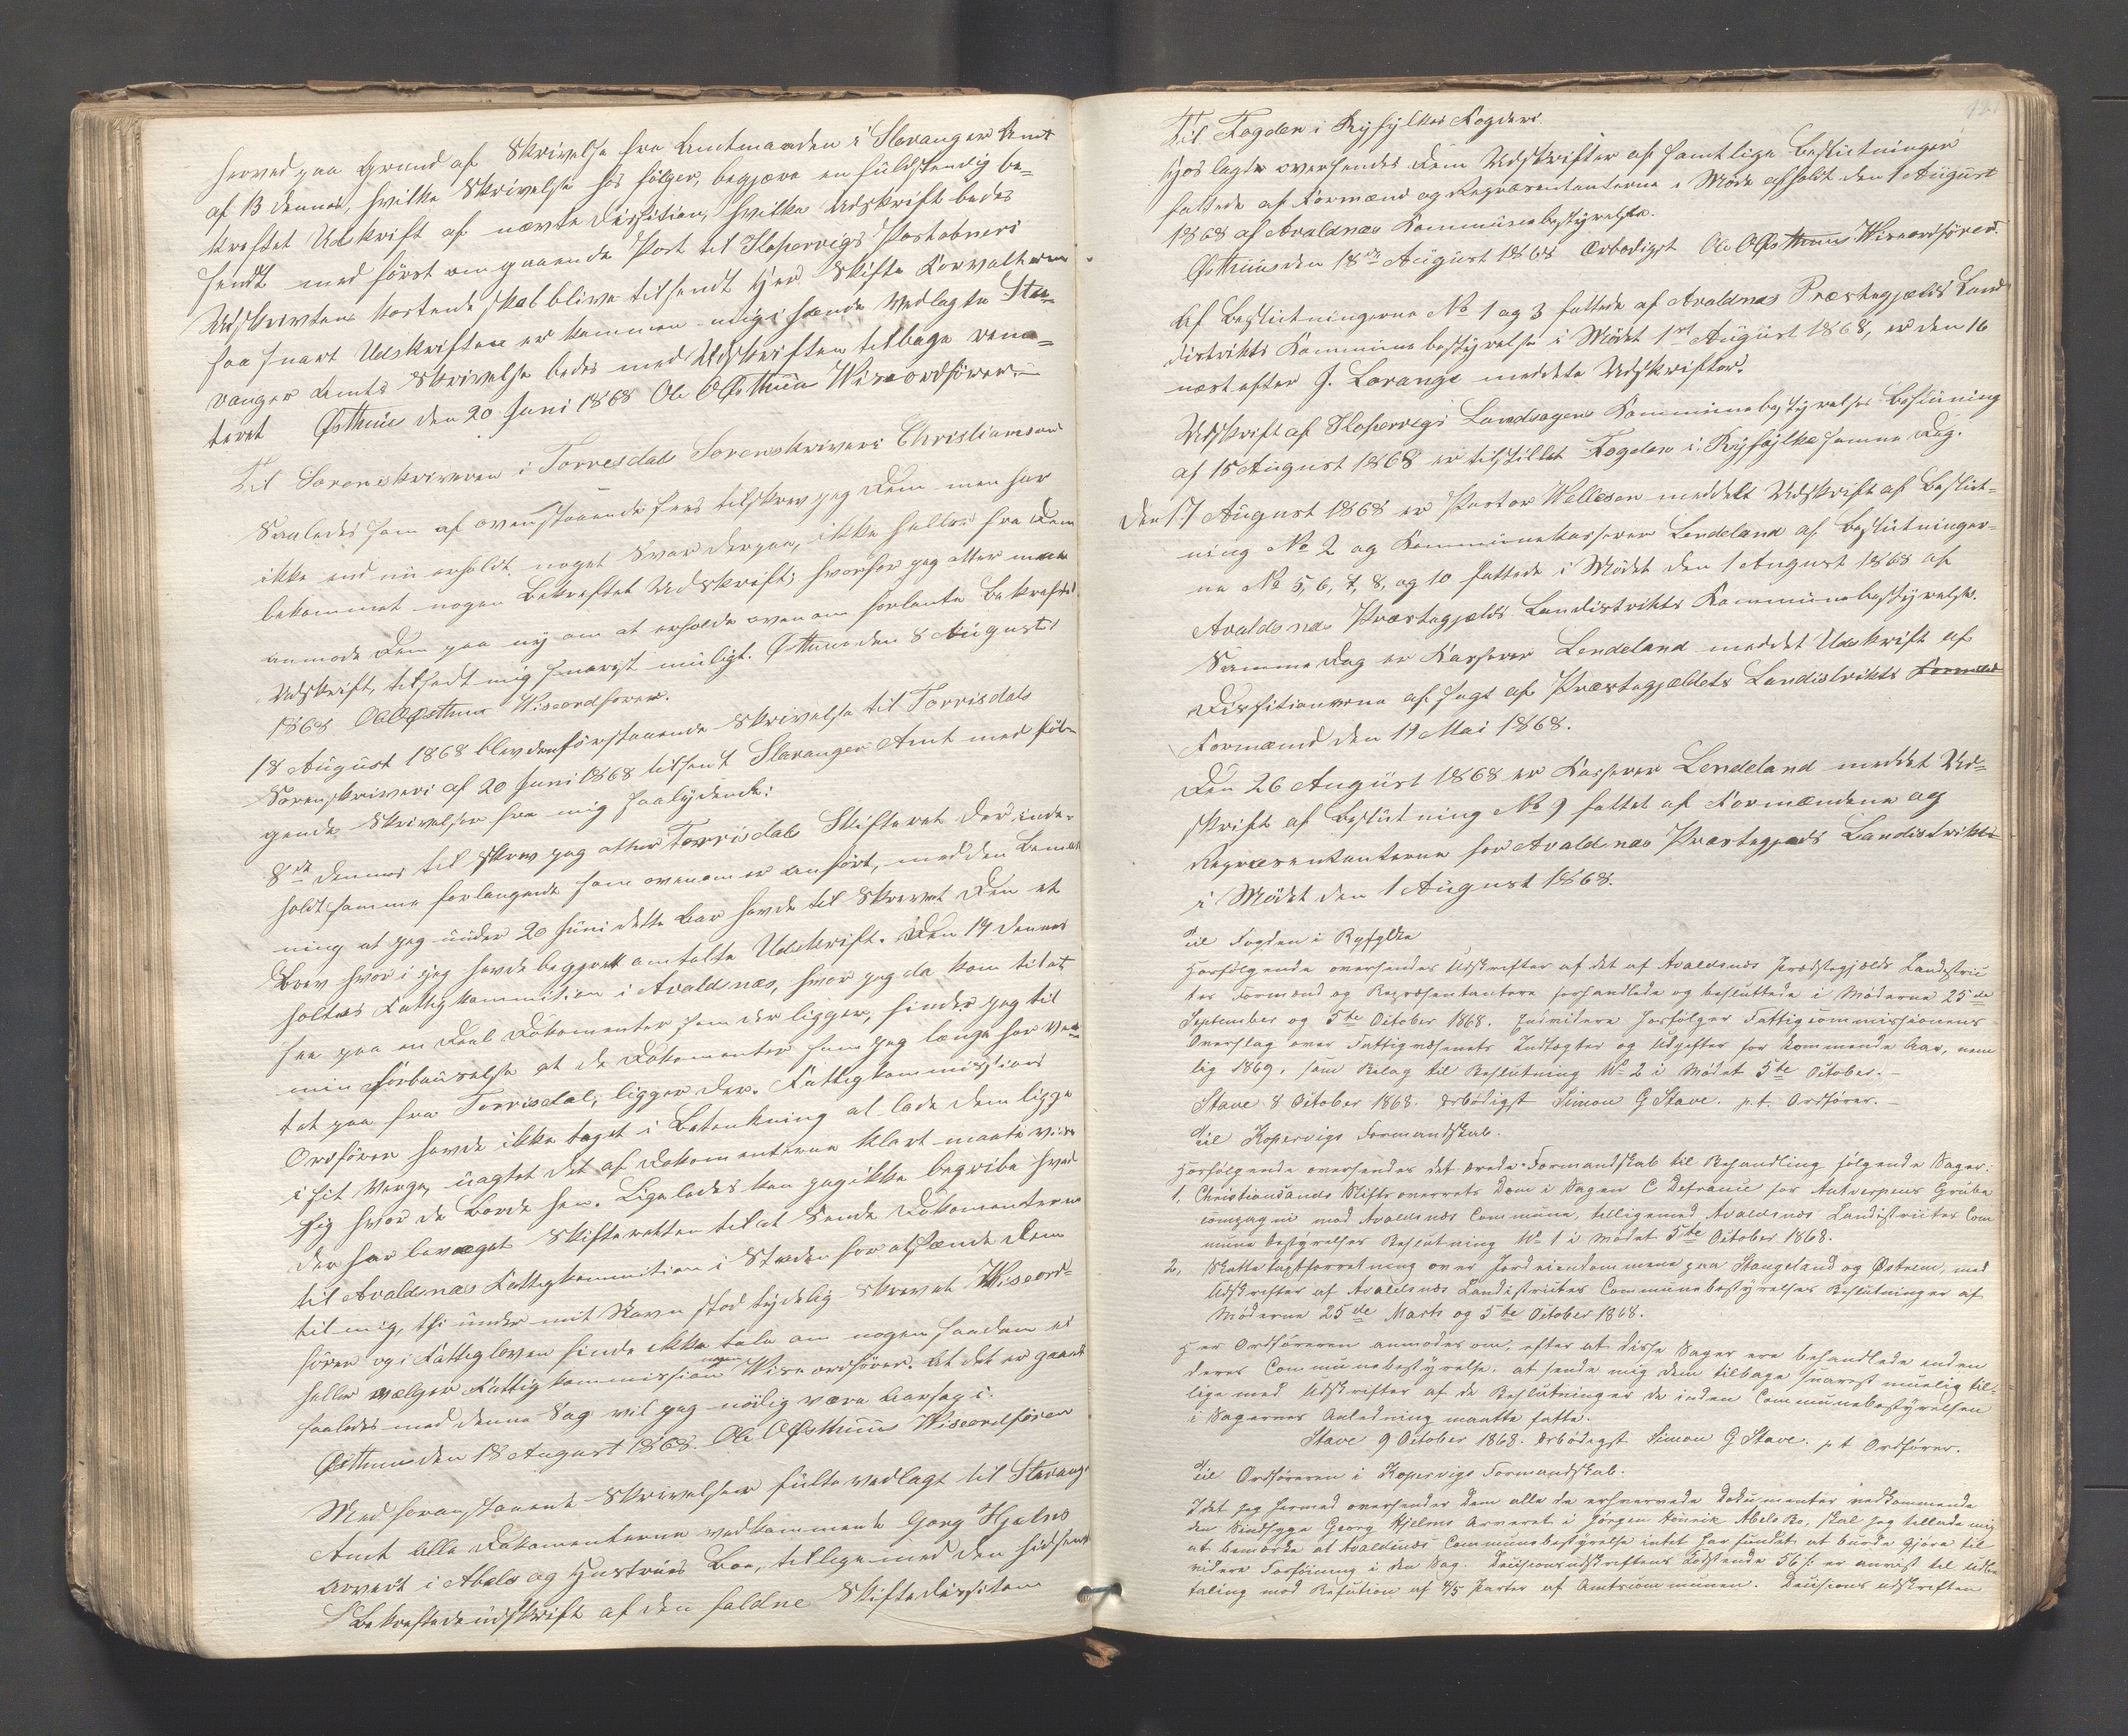 herved paa Grund af Skrivelse fra Amtmanden i Stavanger Amt
af 13 dennes, hvilke Skrivelse hos følger, begjære en fuldstændig be-
kreftet Udskrift af nævte Dissition, hvilke Udskrift bedes
sendt med først om gaaende Post til Kopervigs Postobneri
Udskrivtens kostende skal blive tilsendt Hrr Skifte Forvalteren
saa snart Udskriften er kommen mig i hænde Vedlagte Sta-
vanger Amts Skrivelse bedes med Udskriften tilbage rema-
teret Østhuus den 20 Juni 1868 Ole O Østhuus Viseordfører
Til Sorenskriveren i Torresdals Sorenskriveri Christiansand
Saaledes som af ovenstaaende sees tilskrev jeg Dem men har
ikke end nu erholdt noget Svar derpaa, ikke heller fra Dem
bekommet nogen Bekreftet Udskrift; hvorfor jeg atter maa
anmode Dem paa ny om at erholde oven om forlante Bekreftede
Udskrift, tilsedt mig snarest muligt. Østhuus den 8 August
1868 Ole O Østhuus Viseordfører.
18 August 1868 blev den førstaaende Skrivelse til Torrisdals
Sorenskriveri af 20 Juni 1868 tilsent Stavanger Amt med føl-
gende Skrivelse fra mig saalydende:
8de dennes til skrev jeg atter Torrisdals Skifteret der inde-
holdt samme forlangende som ovenom er anført, med den Bemærk
ning at jeg under 20 Juni dette Aar havde til Skrevet Den et
Brev hvor i jeg havde begjert omtalte Udskrift. Den 14 dennes
holtes Fattigkommition i Avaldsnæs, hvor jeg da kom til at
see paa en Deel Dokomenter som der ligger, finder jeg til
min forbauselse at de Dokomenter som jeg længe har ven
tet paa fra Torrisdal, ligger der. Fattigkommissions
Ordfører havde ikke taget i Betenkning at lade dem ligge
i sit Verge, uagtet det af Dokomenterne klart maate vise
sig hvor de Borde hen. Ligeledes kan jeg ikke begribe hvad
der har bevæget Skifteretten til at Sende Dokomenterne
til Avaldsnæs Fattigkommition i Stæden for at sænde dem
til mig, thi under mit Navn stod tydelig skrevet Viseord-
fører og i Fattigloven findes ikke tale om nogen saadan ei
heller vælger Fattigkommission nogen Viseordfører. At det er gaaet
saaledes med denne Sag vil jeg nødig være Aarsag i.
Østhuus den 18 August 1868. Ole O Østhuus Viseordfører
Med foranstaaende Skrivelser fulte vedlagt til Stavang
Amt Alle Dokomenterne vedkommende Georg Hjelms
arveret i Abels og Hustrues Boe, tillegemed den sidsent
Bekreftede udskrift af den faldne Skiftedissiton
Til Fogden i Ryfylkes Fogderi
Hoslagte oversendes Dem Udskrifter af samtlige Beslutninger
fattede af Formænd og Repræsentanterne i Møde afholdt den 1 August
1868 af Avaldnæs Kommunebestyrelse.
Østhuus den 18de August 1868 Ærbødigst Ole O Østhuus Viseordfører
Af Beslutningerne No 1 og 3 fattede af Avaldnæs Præstegjælds Land
distrikts Kommunebestyrelse i Mødet 1st August 1868, er den 16
næst efter J. Lorange meddelte Udskrifter.
Udskrift af Kopervigs Landsogens Kommunebestyrelses Beslutning
af 15 August 1868 er tilstillet Fogden i Ryfylke samme Dag.
Den 17 August 1868 er Pastor Wellesen meddelt Udskrift af Beslut-
ning No 2 og Kommunekasserer Lendeland af Beslutninger-
ne No 5, 6, 7, 8, og 10 fattede i Mødet den 1 August 1868 af
Avaldsnæs Præstegjælds Landistrikts Kommunebestyrelse.
Samme Dag er Kasserer Lendeland meddet Udskrift af
Dissitionerne afsagt af Præstegjældets Landistrikts
Formænd den 19 Mai 1868.
Den 26 August 1868 er Kasserer Lendeland meddet Ud-
skrift af Beslutning No 9 fattet af Formændene og
Repræsentanterne for Avaldsnæs Præstegjelds Landistrikt
i Mødet den 1 August 1868.
Til Fogden i Ryfylke
Hosfølgende oversendes Udskrifter af det af Avaldsnæs Præstegjælds Landistric
tes Formænd og Repræsentantere forhandlede og besluttede i Møderne 25de
September og 5te October 1868. Endvidere hosfølger Fattigcommissionens
Overslag over Fattigvæsenets Indtægter og Udgifter for kommende Aar, nem
lig 1869, som Bilag til Beslutning No 2 i Mødet 5te October. -
Stave 8 October 1868. Ærbødigst Simon G Stave. p.t. Ordfører. -
Til Kopervigs Formandskab.
Hosfølgende oversendes det ærede Formandskab til Behandling følgende Sager:
1. Christiansands Stiftsoverrets Dom i Sagen C Defrance for Antverpens Grube
compagni mod Avaldsnæs Commune, tilligemed Avaldsnæs Landistrictes Com
mune bestyrelses Beslutning No 1 i Mødet 5te October 1868.
2, Skattetagtforretning over Jordeiendommene paa Stangeland og Østrem, med
Udskrifter af Avaldsnæs Landistrictes Communebestyrelses Beslutninger af
Møderne 25de Marts og 5te October 1868.
Her Ordføreren anmodes om, efter at disse Sager ere behandlede inden
deres Communebestyrelse, at sende mig dem tilbage snarest muelig til-
lige med Udskrifter af de Beslutninger de inden Communebestyrelsen
i Sagernes Anledning maatte fatte.
Stave 9 October 1868. Ærbødigst Simon G Stave. p t Ordfører.
Til Ordføreren i Kopervigs Formandskab.
Idet jeg hermed oversender Dem alle de erhvervede Dokumenter vedkommende
den Sindsyge Georg Hjelms Arveret i Jørgen Henrik Abels Bo, skal jeg tillade mig
at bemærke at Avaldsnæs Communebestyrelse intet har fundet at burde gjøre til
videre Forføining i den Sag. Decisionsudskriftens Kostende 56 s: er anvist til udbe
taling mod Refution af 4/5 Parter af Amtscommunen. Decisions udskriften